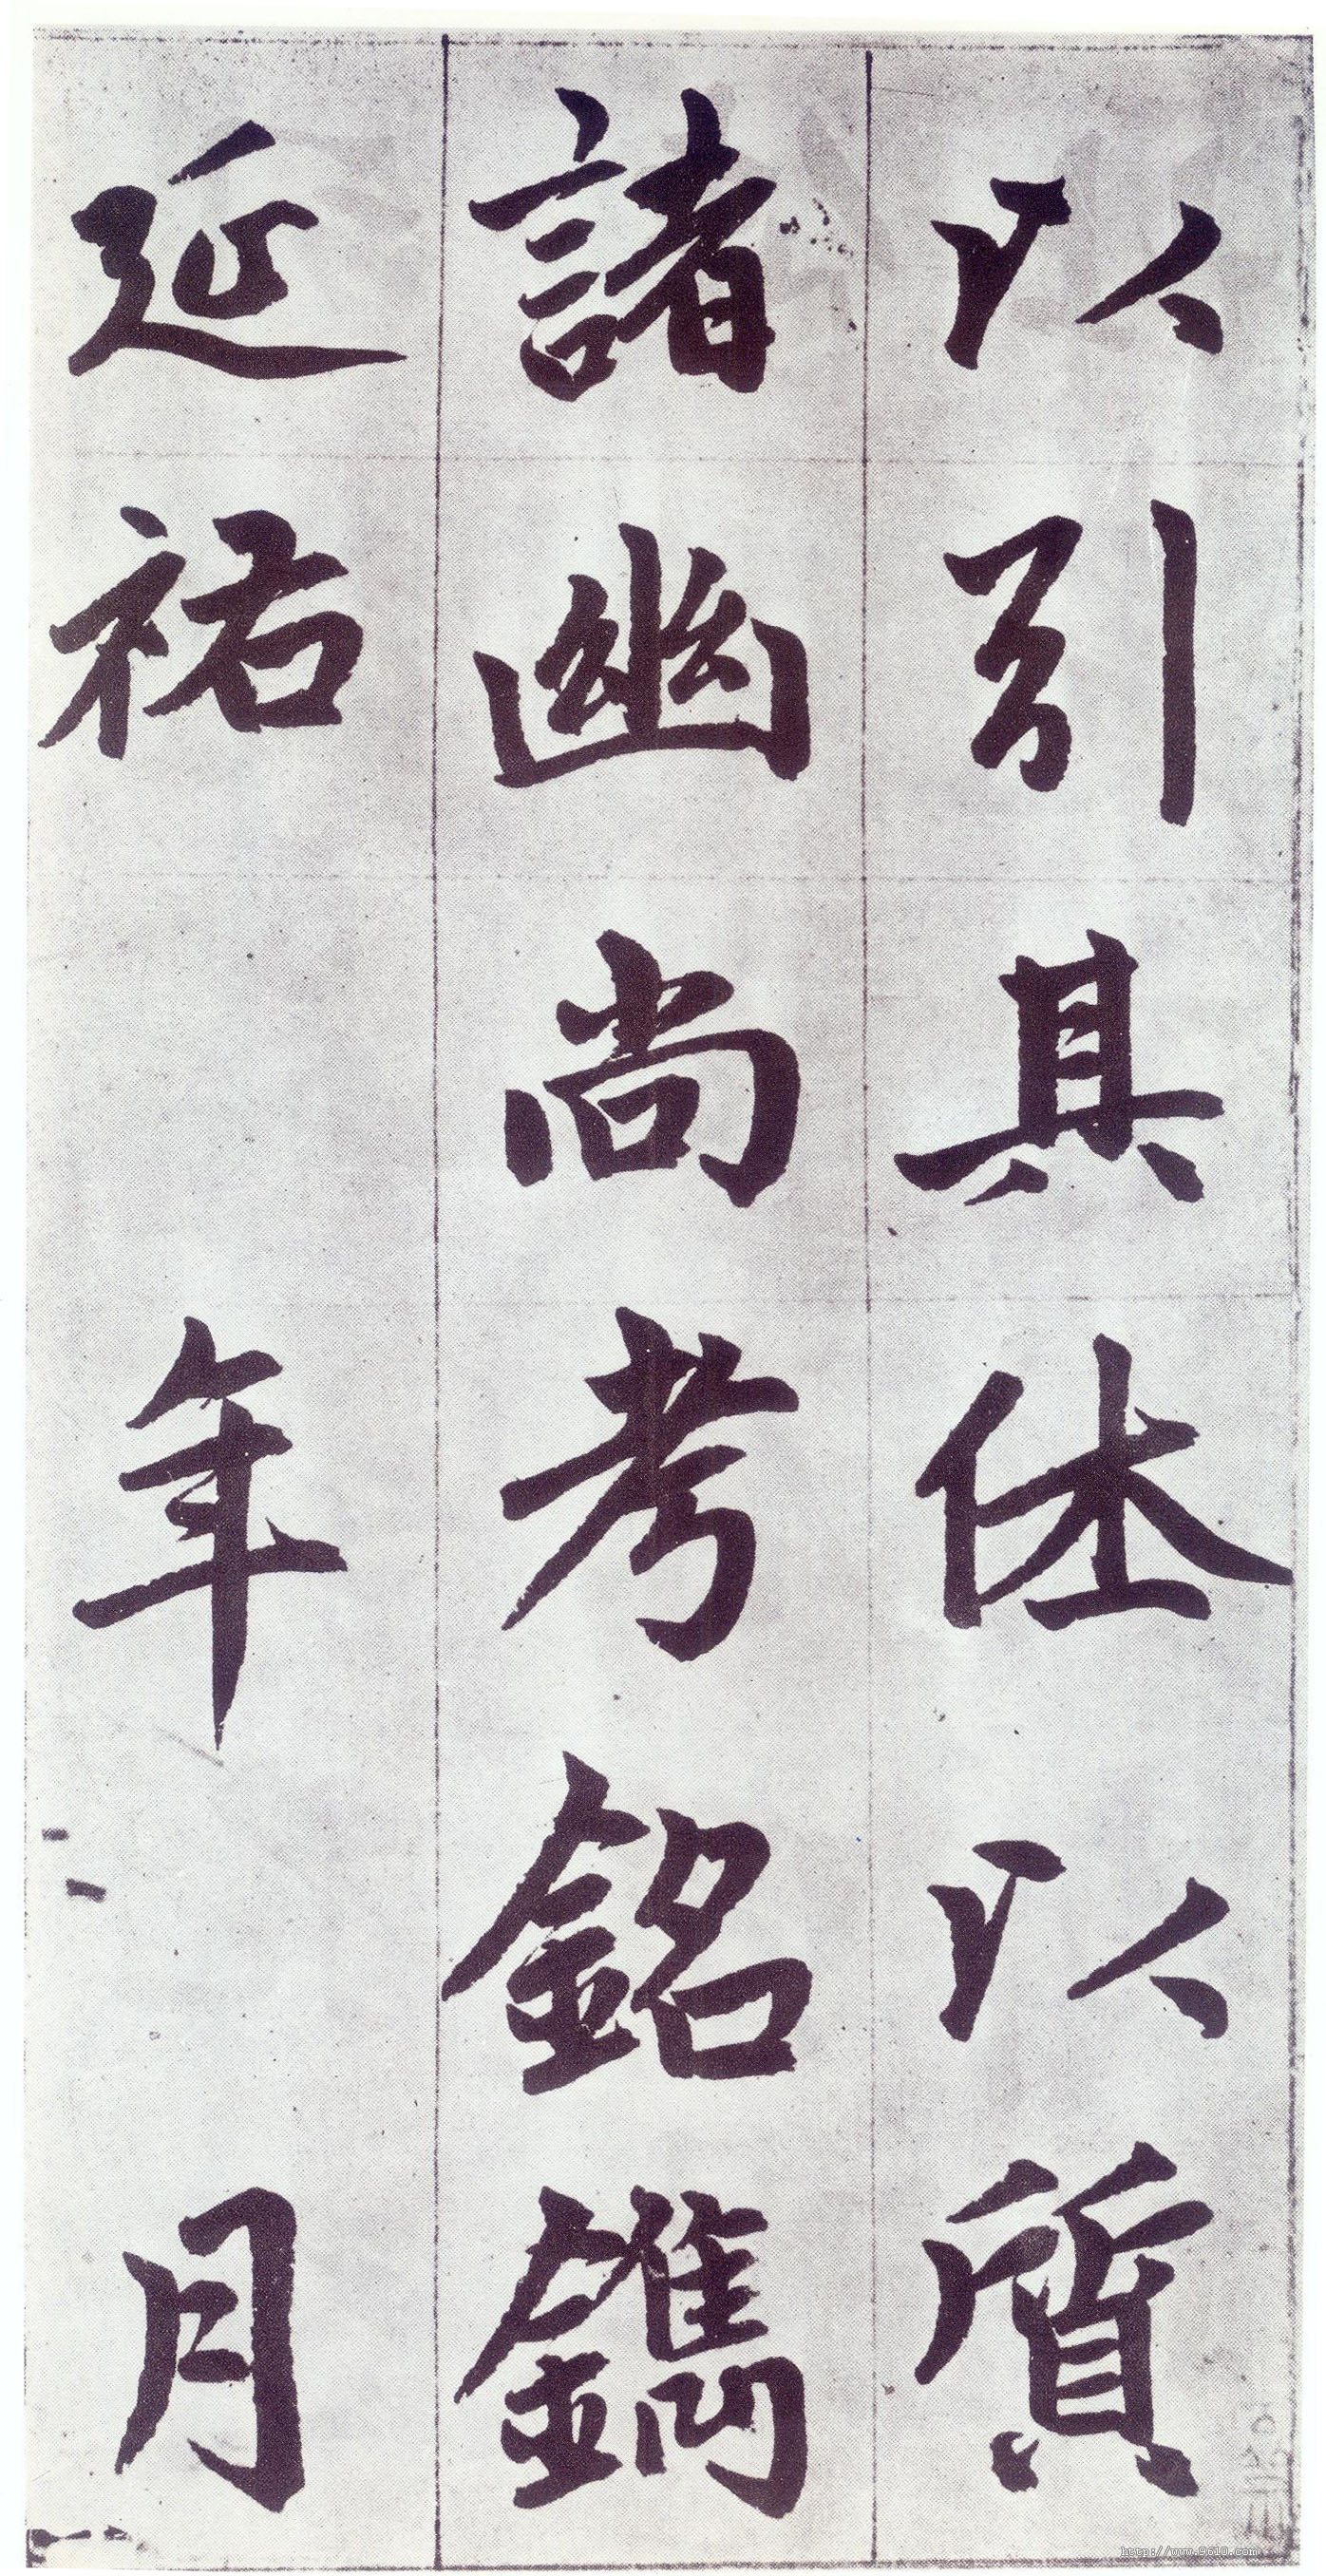 以引其休以質
諸幽尚考銘鐫
延祐 年 月
http://www.9610.com